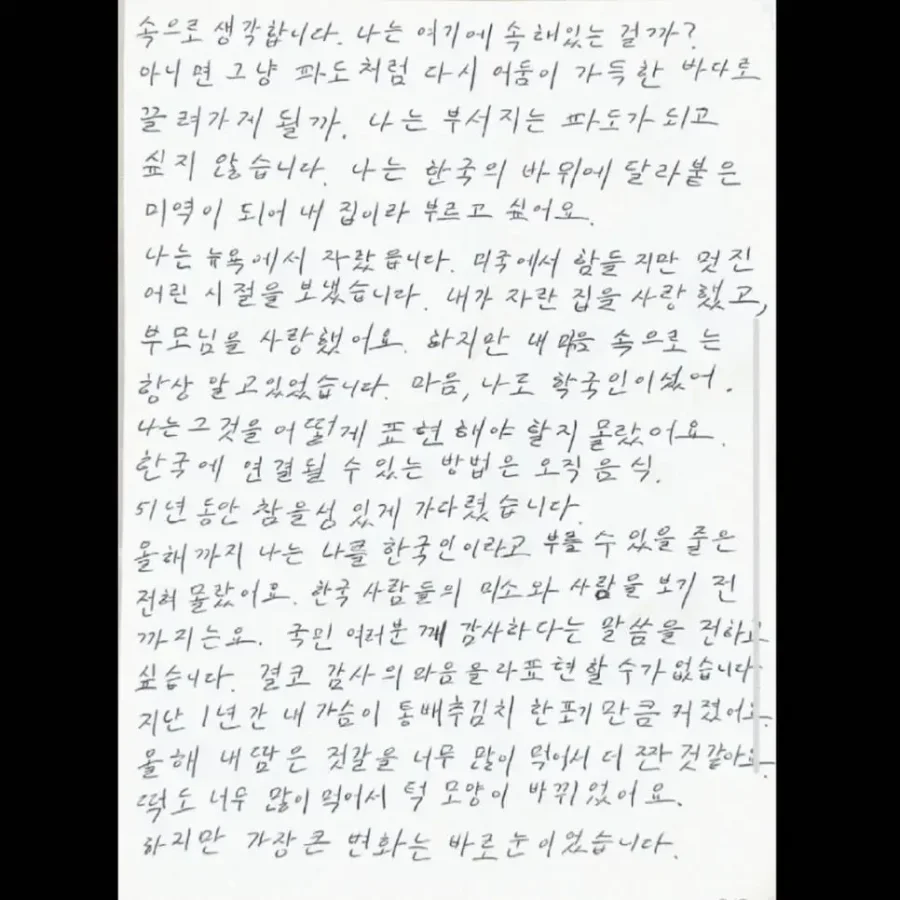 속으로 생각합니다. 나는 여기에 속해있는 걸까?
아니면 그냥 파도처럼 다시 어둠이 가득한 바다로
끌려가게 될까. 나는 부서지는 파도가 되고
싶지 않습니다. 나는 한국의 바위에 달라붙은
미역이 되어 내 집이라 부르고 싶어요.
나는 뉴욕에서 자랐읍니다. 미국에서 힘들지만 멋진
어린 시절을 보냈습니다. 내가 자란 집을 사랑했고,
부모님을 사랑했어요. 하지만 내 마음 속으로는
항상 알고있었습니다. 마음, 나도 한국인이셨어.
나는 그것을 어떻게 표현해야 할지 몰랐어요.
한국에 연결될 수 있는 방법은 오직 음식.
51년 동안 참을성 있게 기다렸습니다.
올해까지 나는 나를 한국인이라고 부를 수 있을 줄은
전혀 몰랐어요. 한국 사람들의 미소와 사람을 보기 전
까지는요. 국민 여러분께 감사하다는 말씀을 전하고
싶습니다. 결코 감사의 마음을 다표현할 수가 없습니다.
지난 1년간 내 가슴이 통배추김치 한포기만큼 커졌어요.
올해 내 땀은 젓갈을 너무 많이 먹어서 더 짠 것같아요.
떡도 너무 많이 먹어서 턱 모양이 바뀌었어요.
하지만 가장 큰 변화는 바로 눈이었습니다.